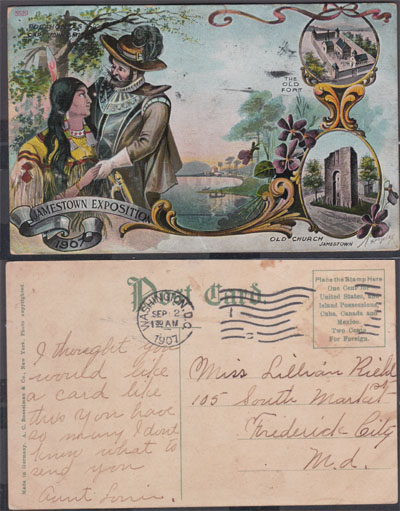 POCAHONTAS
THE
OLD
FORT
JAMESTOWN EXPOSITION
1907
OLD CHURCH
JAMESTOWN
Post Card
WASHINGTON, D.C.
SEP 2
12 AM
1907
Place the Stamp Here
One Cent for
United States, and
Island Possessions
Cuba, Canada and
Mexico.
Two Cents
For Foreign.
Made in Germany. A. C. Bosselman & Co., New York. Photo copyrighted.
I thought you
would like
a card like
this You have
so many I dont
know what to
send you
Aunt
Miss Lillian
105 South Market
Frederick City
M.d.